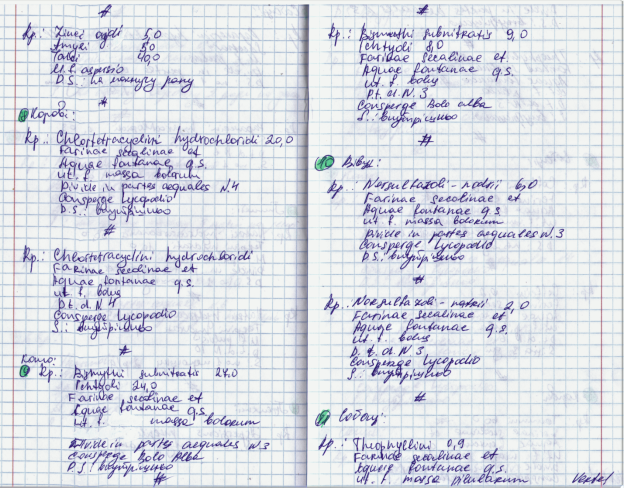 #
Rp.: Zinci oxydi 5,0
Amyli 5,0
Talci 40,0
M.f. aspersio
D.S.: На мокнучу рану
#
8 Корові:
Rp.: Chlortetracyclini hydrochloridi 20,0
Farinae secalinae et
Aquae fontanae q.s.
ut. f. massa bolorum
Divide in partes aequales N.4
Consperge Lycopodio
D.S.: внутрішньо
#
Rp.: Chlortetracyclini hydrochloridi
Farinae secalinae et
Aquae fontanae q.s.
ut. f. bolus
D.t.d. N 4
Consperge Lycopodio
S.: внутрішньо
#
Коню:
9 Rp.: Bismuthi subnitratis 24,0
Ichtyoli 24,0
Farinae secalinae et
Aquae fontanae q.s.
ut. f. massa bolorum
Divide in partes aequales N3
Consperge Bolo Alba
D.S.: внутрішньо
#
#
Rp.: Bismuthi subnitratis 9,0
Ichtyoli 8,0
Farinae secalinae et
Aquae fontanae q.s.
ut. f. bolus
D.t.d. N.3
Consperge Bolo alba
S.: внутрішньо
#
10 Вівці:
Rp.: Norsulfazoli-natrii 6,0
Farinae secalinae et
Aquae fontanae q.s
ut. f. massa bolorum
Divide in partes aequales N.3
Consperge Lycopodio
D.S.: внутрішньо
#
Rp.: Norsulfazoli-natrii 2,0
Farinae secalinae et
Aquae fontanae q.s.
ut. f. bolus
D.t.d. N 3
Consperge Lycopodio
S.: внутрішньо
#
11 Собаці:
Rp.: Theophyllini 0,9
Farinae secalinae et
Aquae fontanae q.s.
ut. f. massa pilularum Verte!